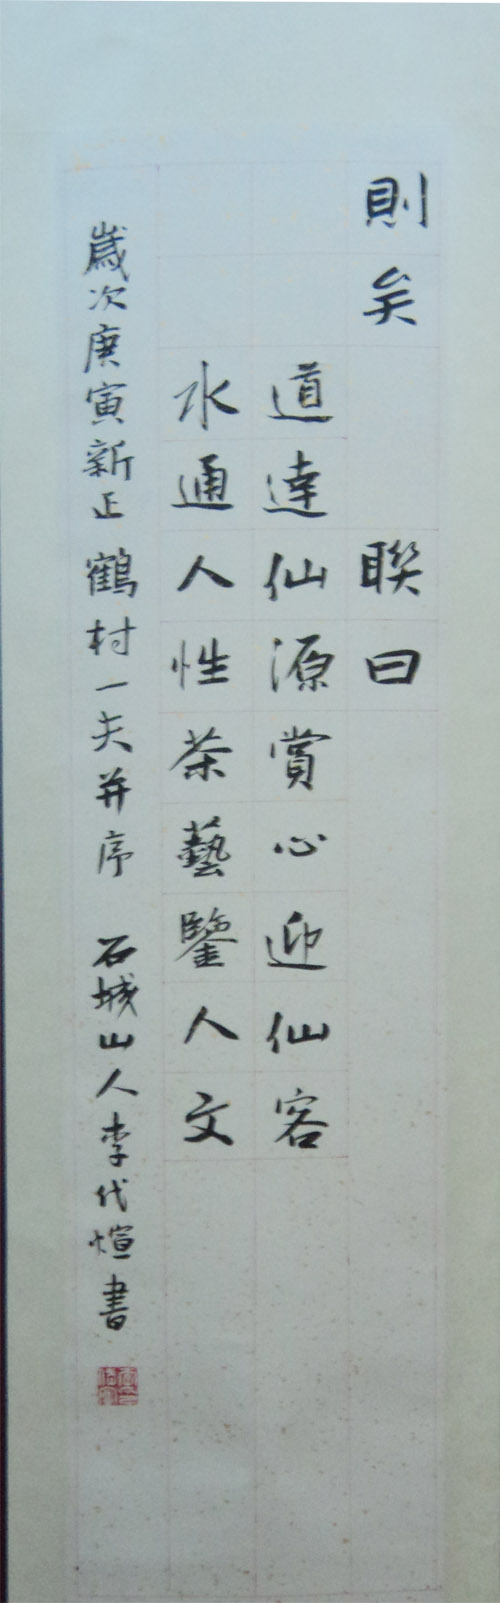 則矣 聯曰
道達仙源賞心迎仙客
水通人性茶藝鑒人文
歲次庚寅新正鶴村一夫并序 石城山人李代煊書